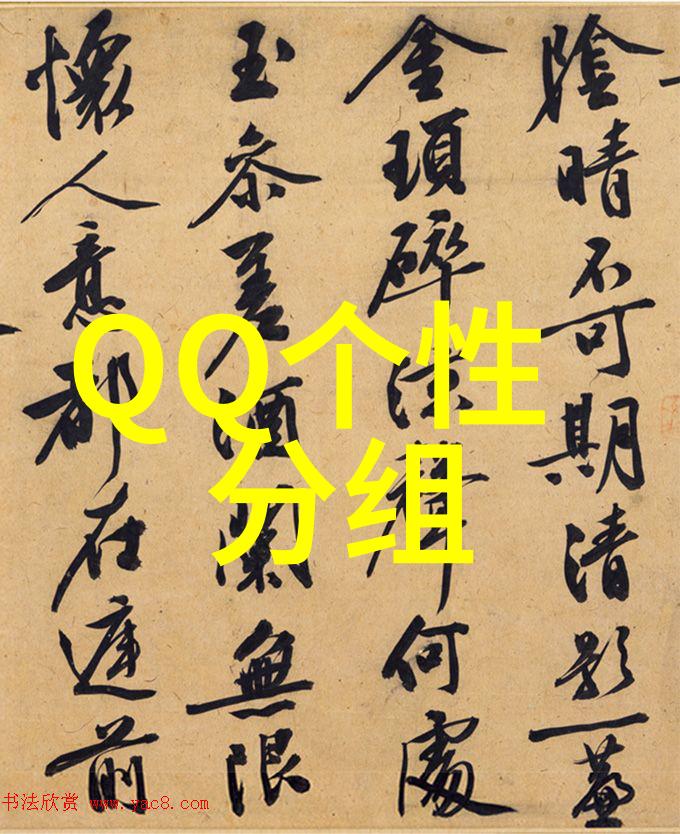 陰晴不可期清影一簾
金瑣碎涼聲何處
玉參差酒闌無限
懷人意都在前
QQ个性
分组
书法欣赏 www.yac8.com